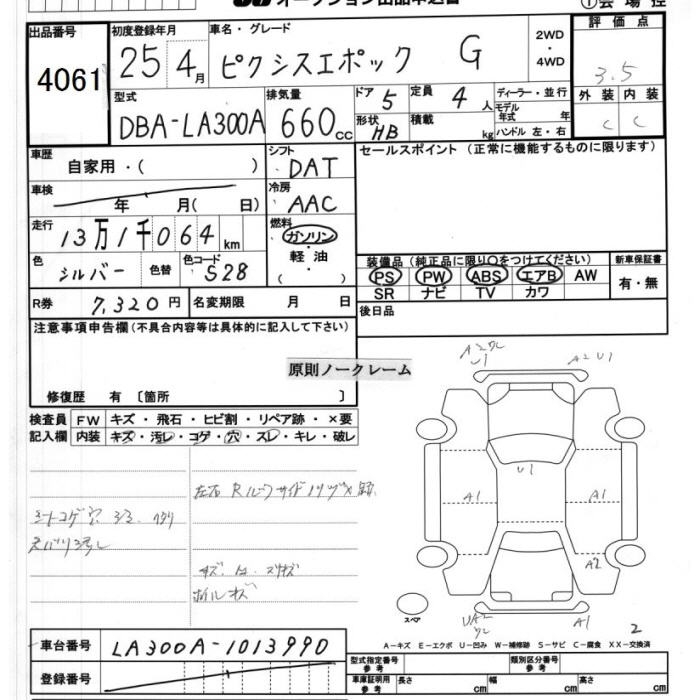 オークション出品申込書
①会場控
出品番号
4061
初度登録年月
25年4月
車名・グレード
ピクシスエポック G
2WD・4WD
評価点
3.5
外装 内装
C C
型式
DBA-LA300A
排気量
660cc
ドア 5
形状 HB
定員 4人
積載 kg
ディーラー・並行
モデル年式 年
ハンドル 左・右
車歴
自家用・( )
シフト
DAT
セールスポイント (正常に機能するものに限ります)
車検
年 月( 日)
冷房
AAC
走行
13万1千064km
燃料
ガソリン・軽油・( )
色
シルバー
色替
色コード
S28
装備品 (純正品に限り○をつけてください)
PS PW ABS エアB AW
SR ナビ TV カワ
新車保証書
有・無
R券 7,320円
名変期限 月 日
後日品
注意事項申告欄(不具合内容等は具体的に記入して下さい)
原則ノークレーム
修復歴 有 〔箇所 〕
検査員記入欄
FW キズ・飛石・ヒビ割・リペア跡・×要
内装 キズ・汚レ・コゲ・穴・スレ・キレ・破レ
A2 U1
U1
U1
A1 A1
A2
A1
2
スペア
A-キズ E-エクボ U-凹み W-補修跡 S-サビ C-腐食 XX-交換済
車台番号
LA300A-1013990
登録番号
型式指定番号 参考
類別区分番号 参考
車庫証明用 参考
長さ cm 幅 cm 高さ cm